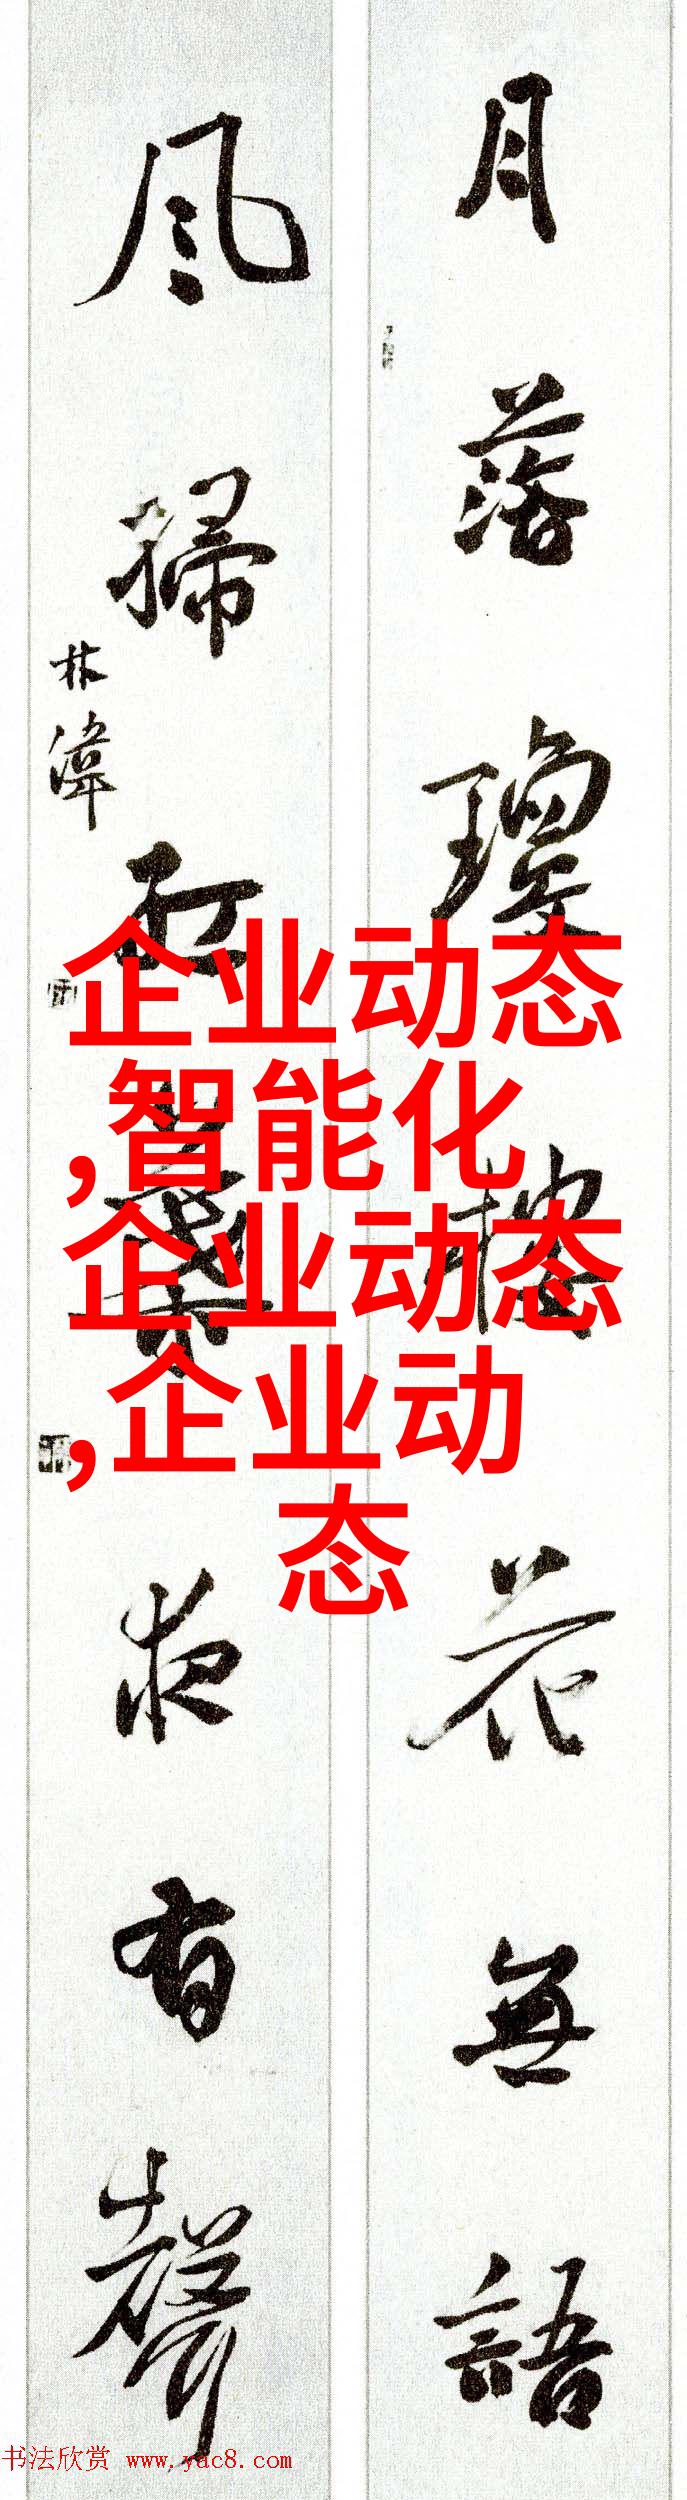 月落瓊樓花無語
風掃紅葉夜有聲
林偉
企业动态
,智能化
企业动态
,企业动
态
书法欣赏 www.yac8.com